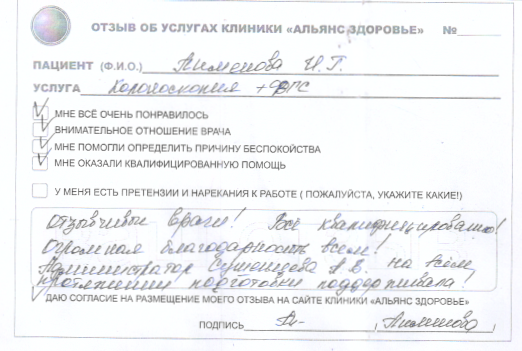 ОТЗЫВ ОБ УСЛУГАХ КЛИНИКИ «АЛЬЯНС ЗДОРОВЬЕ» №
ПАЦИЕНТ (Ф.И.О.) Пименова И.Г.
УСЛУГА Колоноскопия + ФГС
МНЕ ВСЁ ОЧЕНЬ ПОНРАВИЛОСЬ
ВНИМАТЕЛЬНОЕ ОТНОШЕНИЕ ВРАЧА
МНЕ ПОМОГЛИ ОПРЕДЕЛИТЬ ПРИЧИНУ БЕСПОКОЙСТВА
МНЕ ОКАЗАЛИ КВАЛИФИЦИРОВАННУЮ ПОМОЩЬ
У МЕНЯ ЕСТЬ ПРЕТЕНЗИИ И НАРЕКАНИЯ К РАБОТЕ ( ПОЖАЛУЙСТА, УКАЖИТЕ КАКИЕ!)
Отзывчивые врачи! Всё квалифицированно!
Огромная благодарность всем!
Администратор А.В. на всём
протяжении подготовки поддерживала!
ДАЮ СОГЛАСИЕ НА РАЗМЕЩЕНИЕ МОЕГО ОТЗЫВА НА САЙТЕ КЛИНИКИ «АЛЬЯНС ЗДОРОВЬЕ»
ПОДПИСЬ Пименова